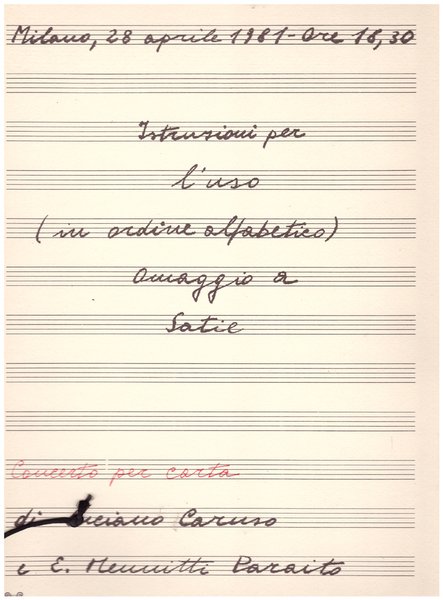 Milano, 28 aprile 1981 - Ore 18,30
Istruzioni per
l'uso
(in ordine alfabetico)
Omaggio a
Satie
Concerto per carta
di Luciano Caruso
e E. Mennitti Paraito